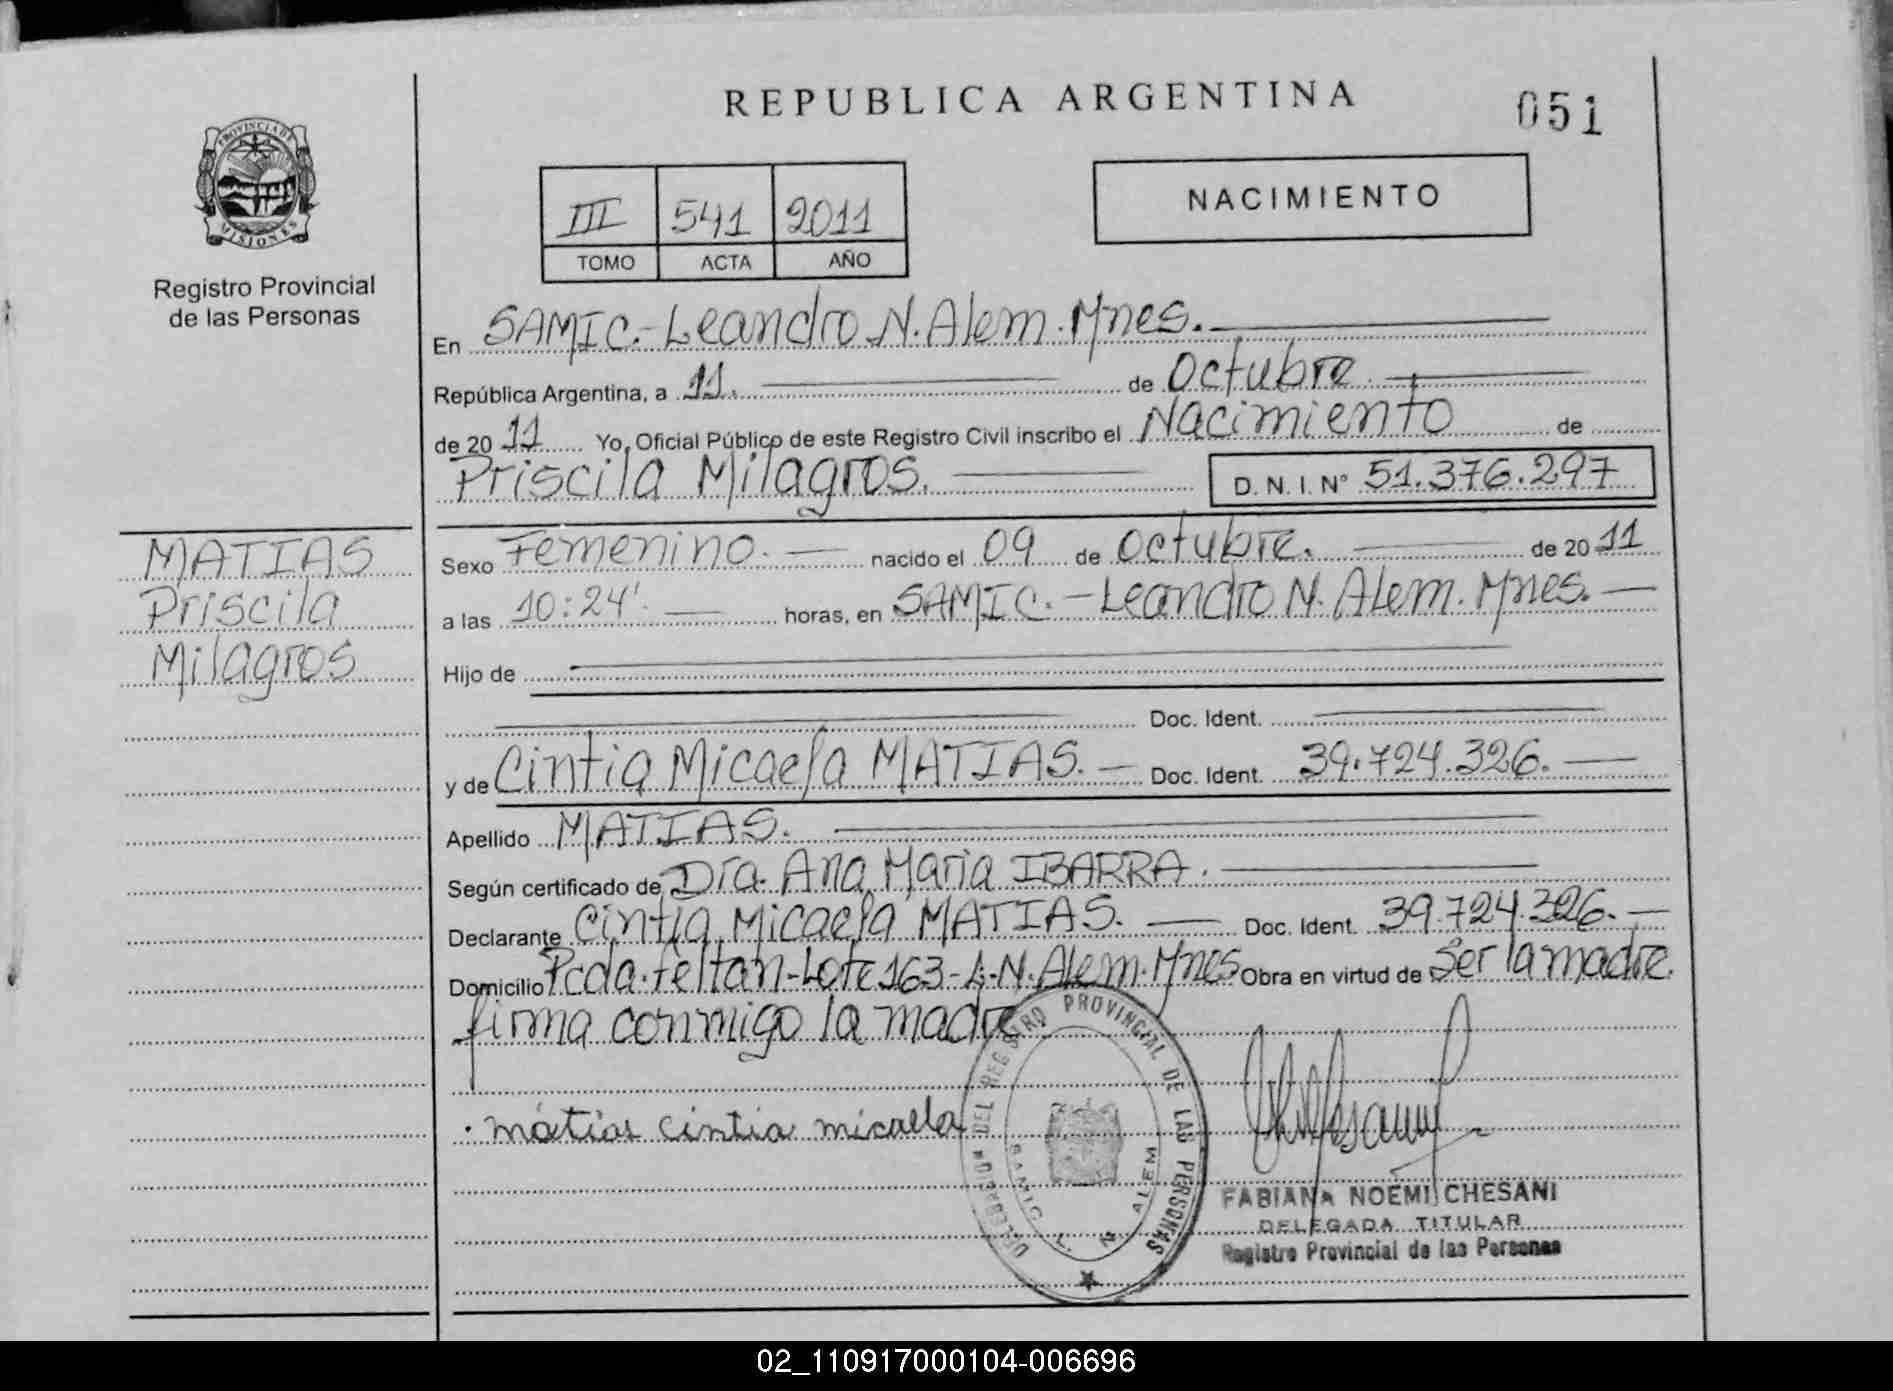 REPUBLICA ARGENTINA
051
PROVINCIA DE
MISIONES
Registro Provincial
de las Personas
III 541 2011
TOMO ACTA AÑO
NACIMIENTO
En SAMIC.-Leandro N. Alem. Mnes.
República Argentina, a 11. de Octubre
de 20 11 Yo, Oficial Público de este Registro Civil inscribo el Nacimiento de
Priscila Milagros. D. N. I. N° 51.376.297
MATIAS
Priscila
Milagros
Sexo Femenino. nacido el 09 de Octubre. de 20 11
a las 10:24'. horas, en SAMIC.-Leandro N. Alem. Mnes.
Hijo de
Doc. Ident.
y de Cintia Micaela MATIAS. Doc. Ident. 39.724.326.
Apellido MATIAS.
Según certificado de Dra. Ana Maria IBARRA.
Declarante Cintia Micaela MATIAS. Doc. Ident. 39.724.326.
Domicilio Pcda. Feltan-Lote 163-L.N. Alem. Mnes Obra en virtud de Ser la madre.
firma conmigo la madre
matias cintia micaela
DEL REGISTRO PROVINCIAL DE LAS PERSONAS
SAMIC L. N. ALEM
FABIANA NOEMI CHESANI
DELEGADA TITULAR
Registro Provincial de las Personas
02_110917000104-006696